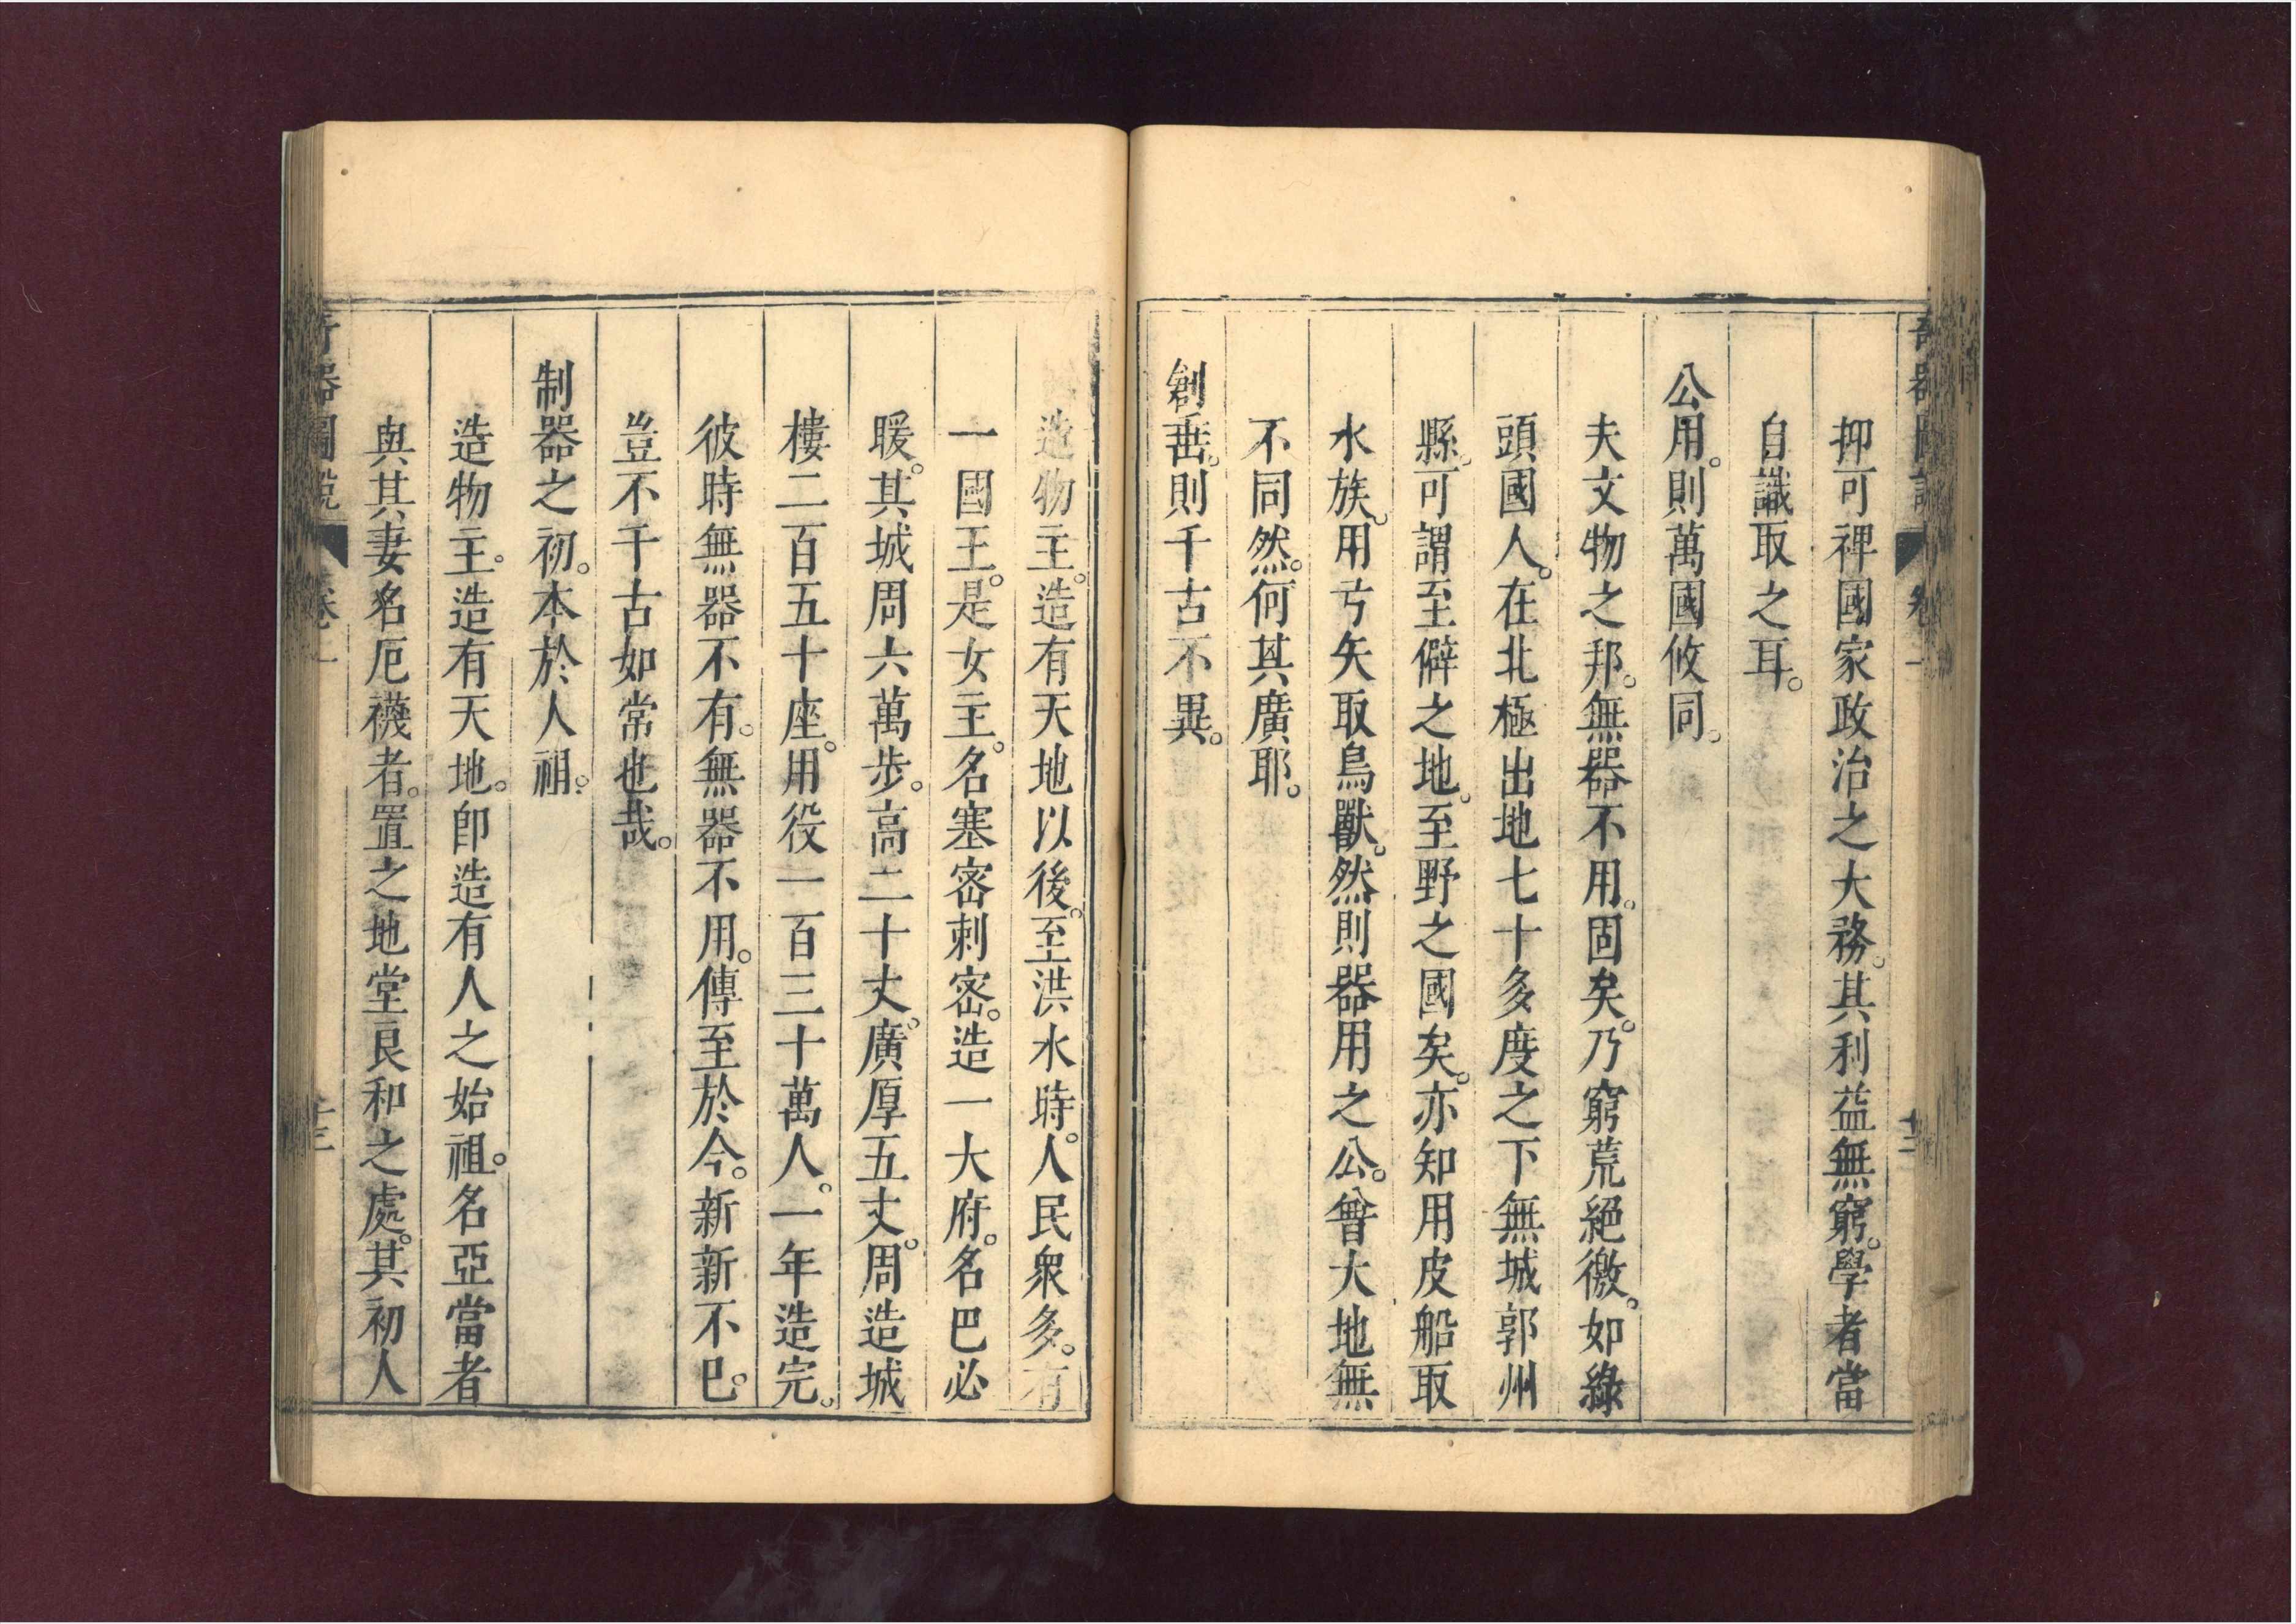 抑可裨國家政治之大務。其利益無窮。學者當
自識取之耳。
公用。則萬國攸同。
夫文物之邦。無器不用。固矣。乃窮荒絕徼。如綠
頭國人。在北極出地七十多度之下無城郭州
縣。可謂至僻之地。至野之國矣。亦知用皮船取
水族。用弓矢取鳥獸。然則器用之公。曾大地無
不同然。何其廣耶。
創垂。則千古不異。
造物主。造有天地以後。至洪水時。人民衆多。有
一國王。是女主。名塞密剌密。造一大府。名巴必
暖。其城周六萬步。高二十丈。廣厚五丈。周造城
樓二百五十座。用役一百三十萬人。一年造完。
彼時無器不有。無器不用。傳至於今。新新不已。
豈不千古如常也哉。
制器之初。本於人祖。
造物主。造有天地。卽造有人之始祖。名亞當者
與其妻名厄襪者。置之地堂良和之處。其初人
奇器圖說 卷一 十三